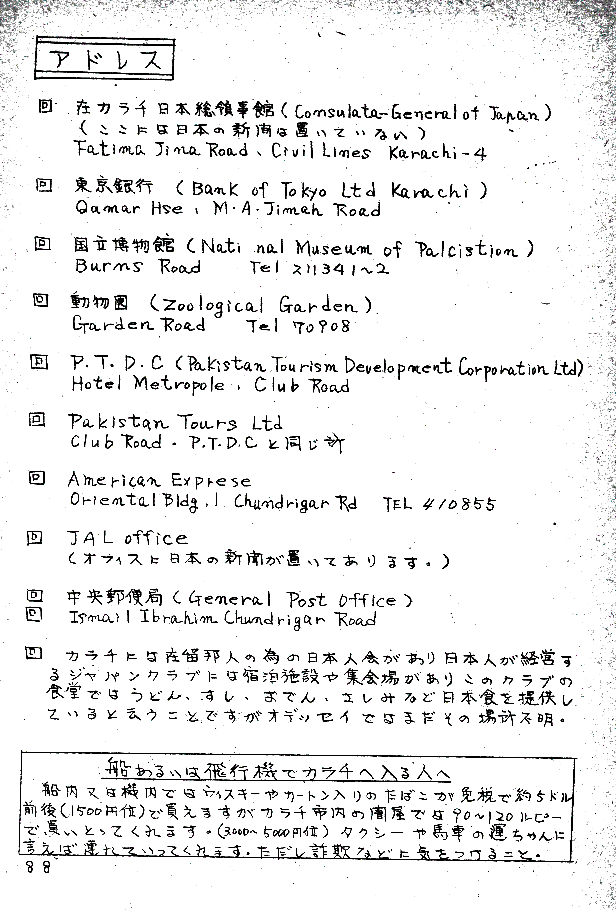 アドレス
回 在カラチ日本総領事館(Consulata-General of Japan)
(ここには日本の新聞は置いていない)
Fatima Jina Road、Civil Lines Karachi-4
回 東京銀行 (Bank of Tokyo Ltd Karachi)
Qamar Hse, M.A.Jimah Road
回 国立博物館(Nati nal Museum of Palcistion)
Burns Road Tel 211341~2
回 動物園 (Zoological Garden)
Garden Road Tel 70908
回 P.T.D.C (Pakistan Tourism Development Corporation Ltd)
Hotel Metropole, Club Road
回 Pakistan Tours Ltd
Club Road. P.T.D.Cと同じ所
回 American Exprese
Oriental Bldg, I Chundrigar Rd TEL 410855
回 JAL office
(オフィスに日本の新聞が置いてあります。)
回 中央郵便局(General Post office)
回 Ismail Ibrahim Chundrigar Road
回 カラチには在留邦人の為の日本人会があり日本人が経営す
るジャパンクラブには宿泊施設や集会場がありこのクラブの
食堂ではうどん、すし、おでん、さしみなど日本食を提供し
ていると云うことですがオデッセイではまだその場所不明。
船あるいは飛行機でカラチへ入る人へ
船内又は機内ではウィスキーやカートン入りのたばこが免税で約5ドル
前後(1500円位)で買えますがカラチ市内の闇屋では90~120ルピー
で買いとってくれます。(3000~5000円位)タクシーや馬車の運ちゃんに
言えば連れていってくれます。ただし詐欺などに気をつけること。
88